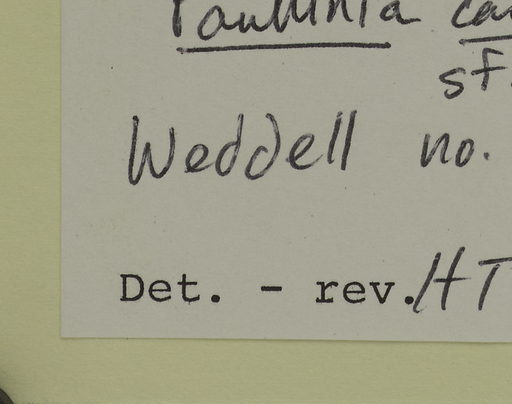 Paullinia ca
sf.
Weddell no.
Det. - rev. HT